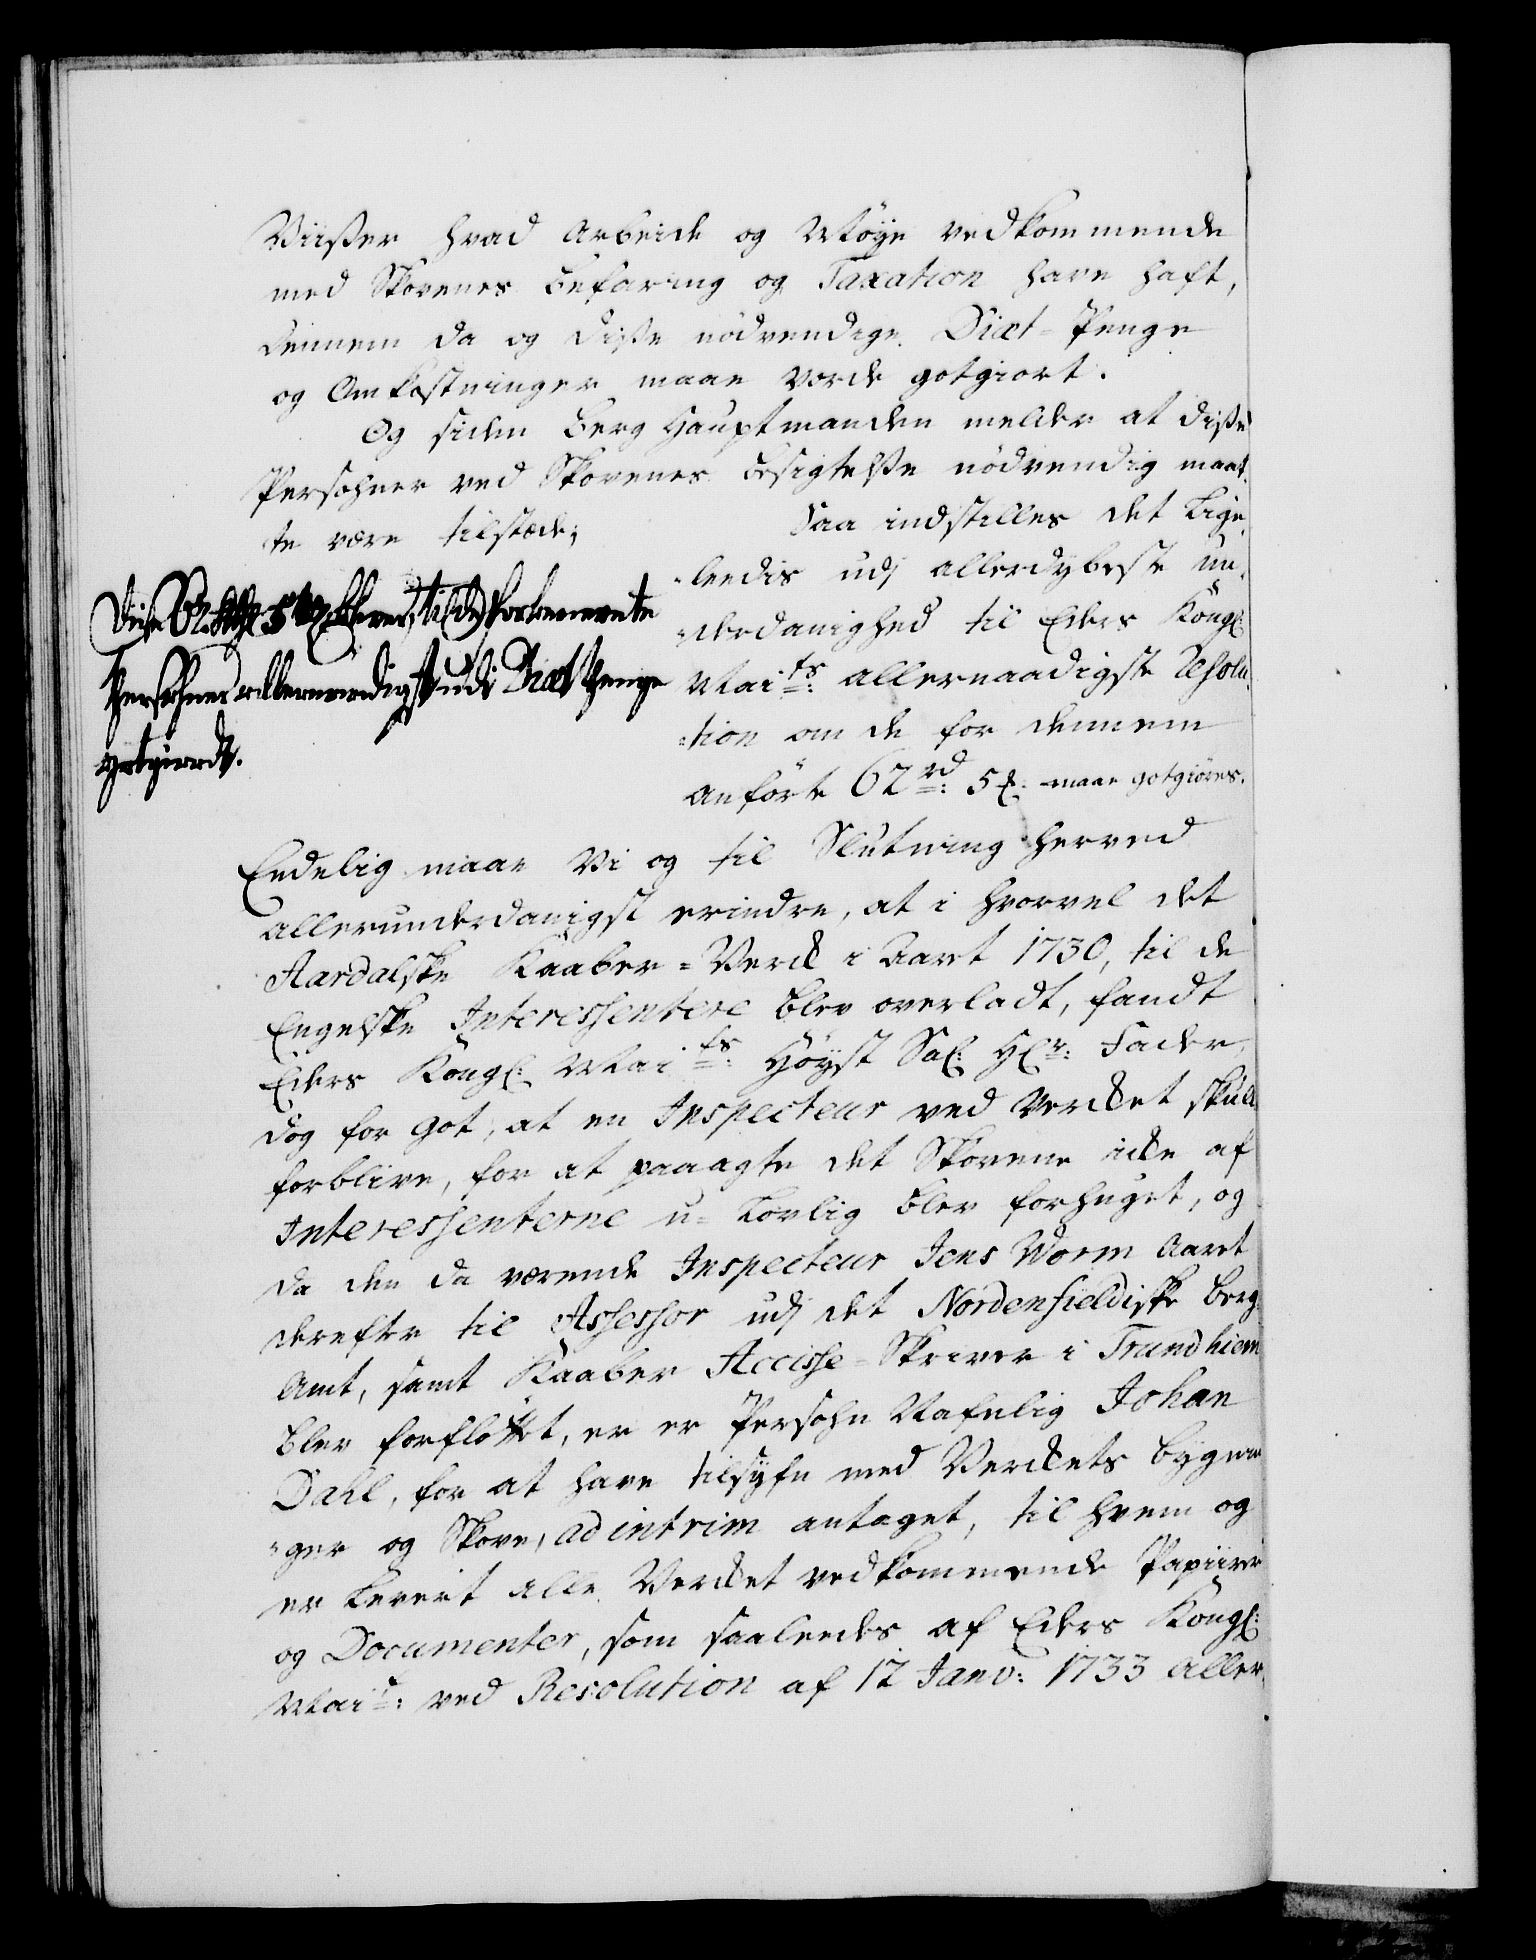 Viißer hvad Arbeide og Møye vedkommende
med Skovenes Befaring og Taxation have haft,
dennem da og diße nødvendige Diæt-Penge
og Omkostninger maae vorde gotgiort.
Og siden Berg Hauptmanden melder at diße
Persohner ved Skovenes Besigtelße nødvendig maat-
te være tilstæde;
Saa indstilles det lige-
-leedis udj allerdybeste un-
-derdanighed til Eders Kongl:
Maits: allernaadigste Resolu-
-tion om de for dennem
anførte 62 rd: 5 ß: maae gotgiøres.
Diße 62 5 til de
Persohner allernaadigst udi Diæt Penge
gotgiordt.
Endelig maae Vi og til Slutning herved
allerunderdanigst erindre, at i hvorvel det
Aardalske Kaaber-Verck i Aaret 1730, til de
Engelske Interessentere blev overladt, fandt
Eders Kongl: Maits: Høyst Sal: Hr: Fader,
dog for got, at en Inspecteur ved Vercket skulle
forblive, for at paaagte det Skovene icke af
Interessenterne u-lovlig blev forhuget, og
da den da værende Inspecteur Jens Worm Aaret
derefter til Assessor udj det Nordenfieldiske Berg-
Amt, samt Kaaber Accisse-Skriver i Trundhiem
blev forfløttet, er en Persohn Nafnlig Johan
Dahl, for at have tilsyfn med Verckets bygnin-
-ger og Skove, ad intrim antaget, til hvem og
er leverit alle Vercket vedkommende Papiirer
og Documenter, som saaleedes af Eders Kongl:
Mait: ved Resolution af 12 Janv: 1733 aller-